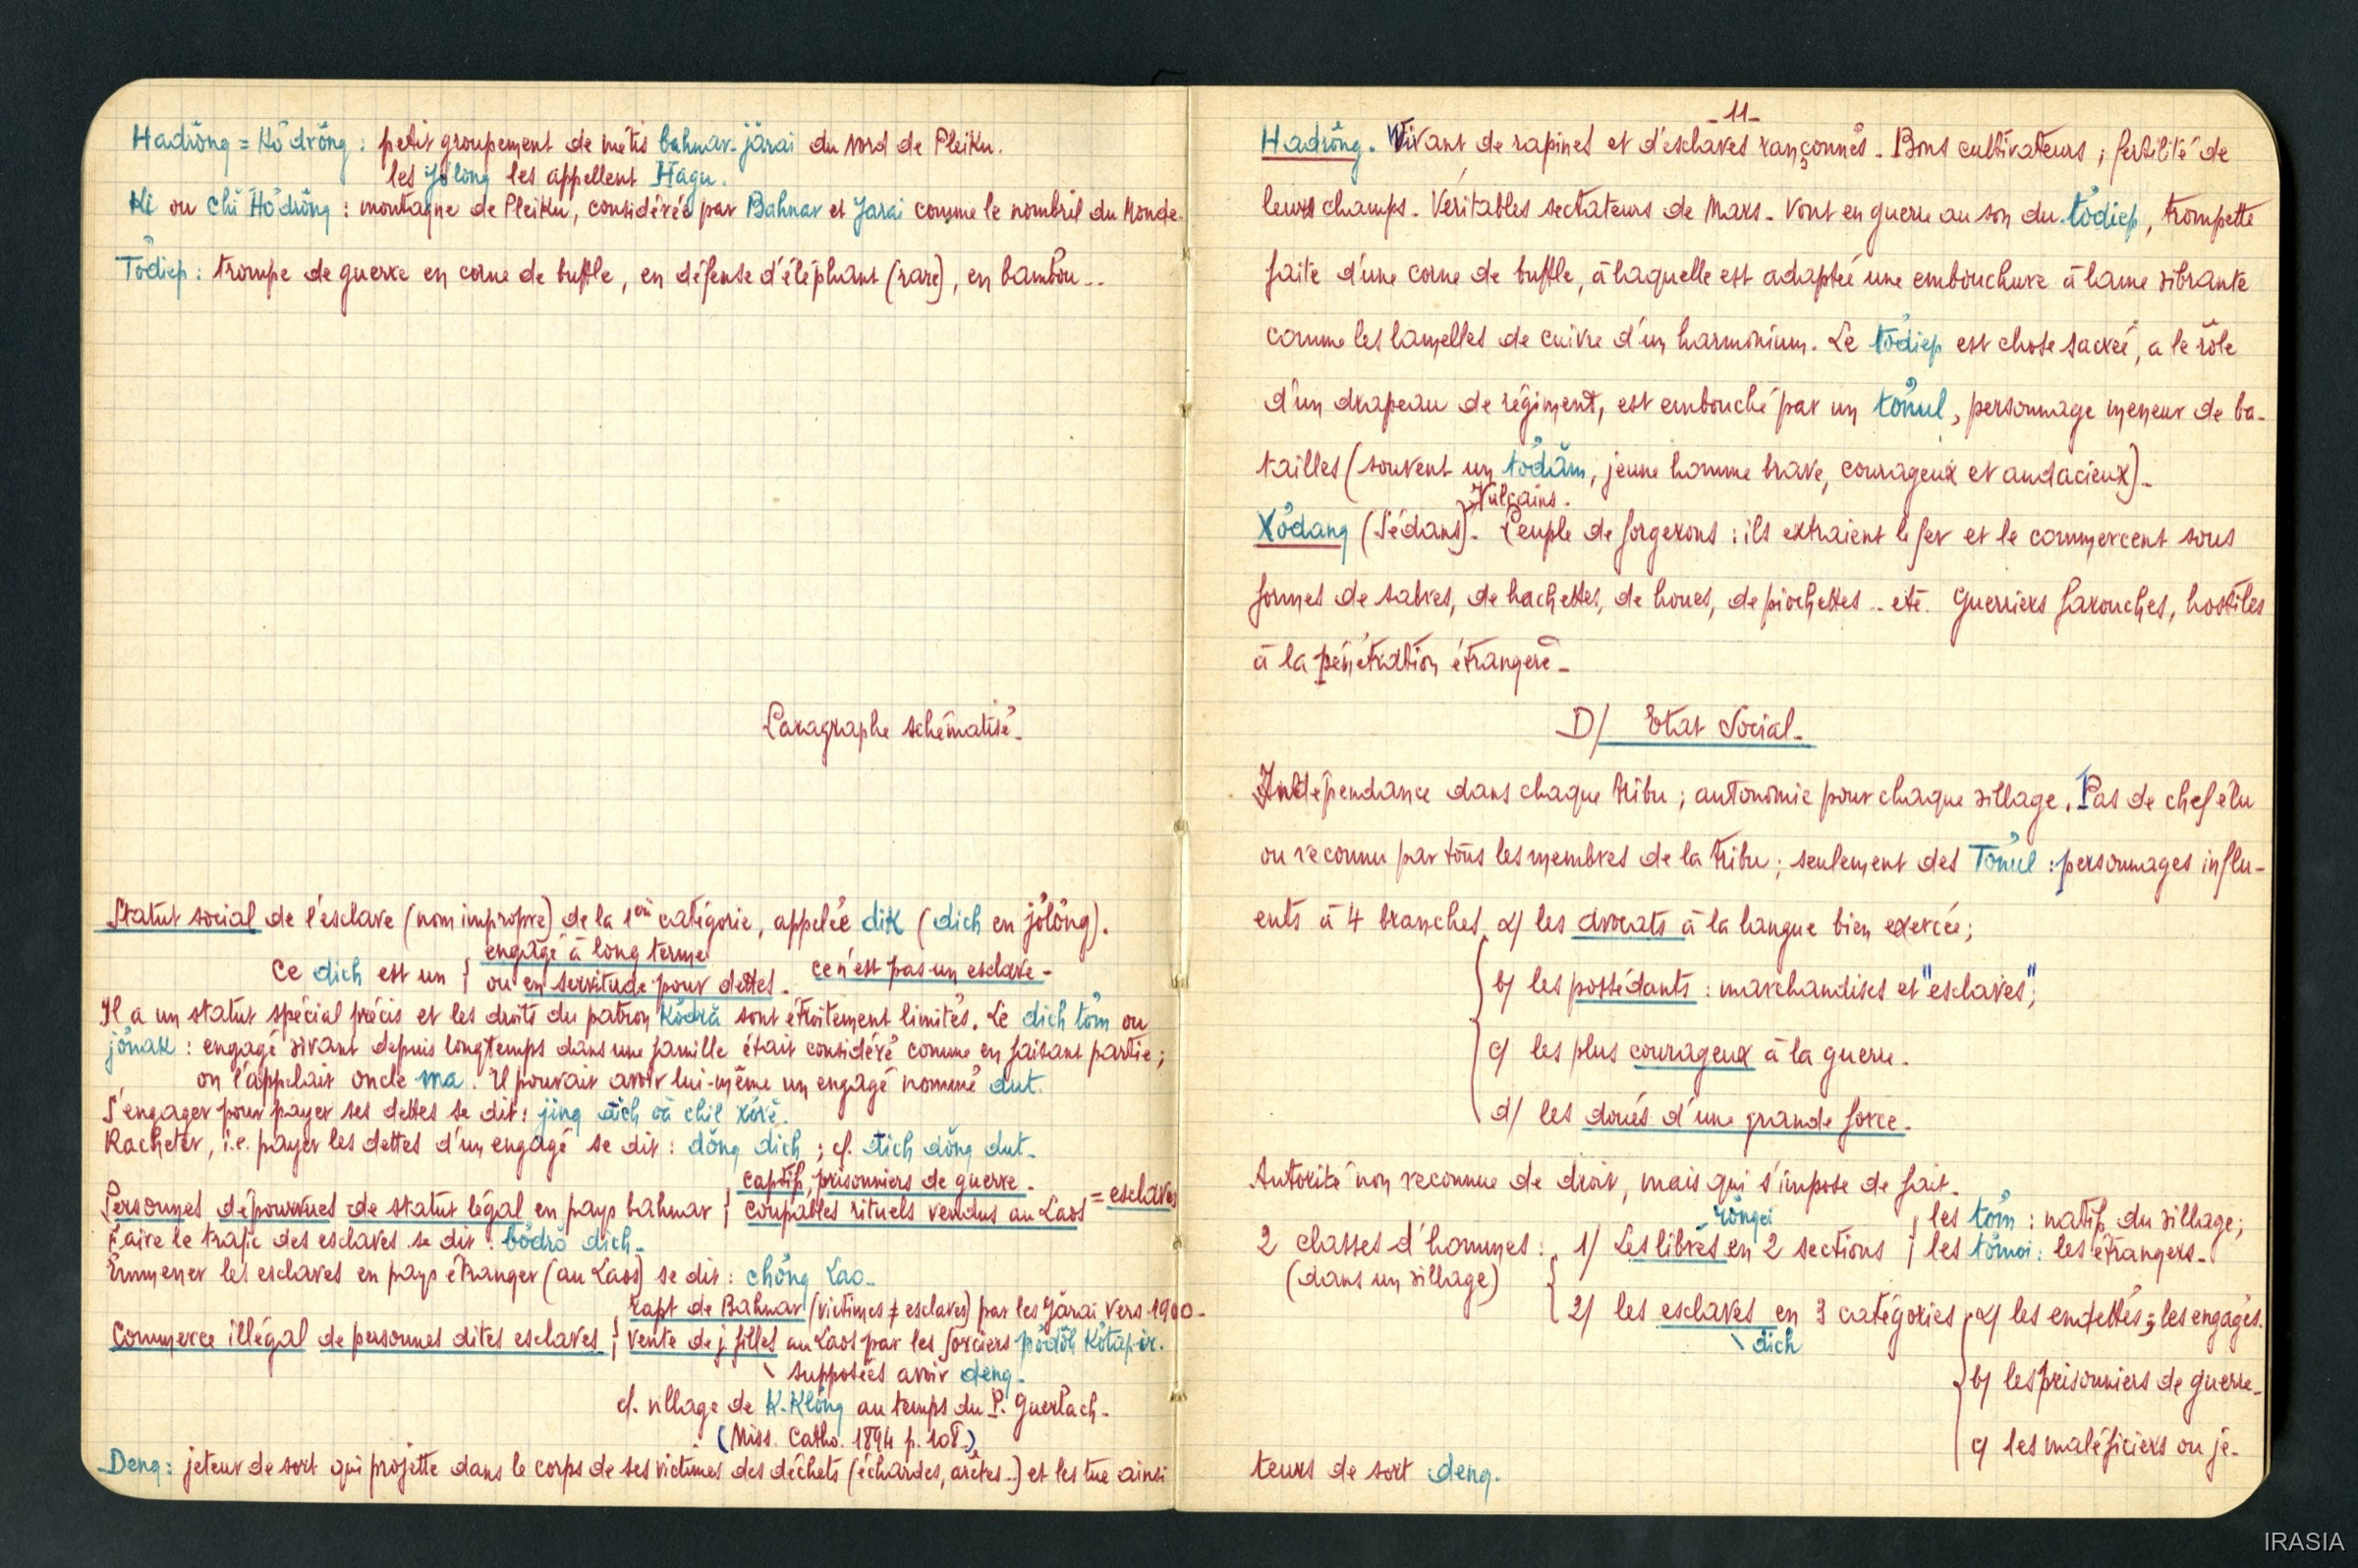 Hadrŏng = Hơdrŏng : petit groupement de métis bahnar-jărai du nord de Pleiku.
les Jơlong les appellent Hagu.
Ki ou Chi Hơdrŏng : montagne de Pleiku, considérée par Bahnar et Jarai comme le nombril du Monde.
Tơdiep : trompe de guerre en corne de buffle, en défense d'éléphant (rare), en bambou...
Paragraphe schématisé.
Statut social de l'esclave (nom impropre) de la 1ère catégorie, appelée dik (dich en jơlŏng).
Ce dich est un { engagé à long terme
ou en servitude pour dettes. ce n'est pas un esclave -
Il a un statut spécial précis et les droits du patron kơdră sont étroitement limités. Le dich tơm ou
jơnak : engagé vivant depuis longtemps dans une famille était considéré comme en faisant partie ;
on l'appelait oncle ma. Il pouvait avoir lui-même un engagé nommé dut.
S'engager pour payer ses dettes se dit : jing dich
Racheter, i.e. payer les dettes d'un engagé se dit : dŏng dich ; cf. dich dŏng dut.
Personnes dépourvues de statut légal en pays bahnar { captifs, prisonniers de guerre.
coupables rituels vendus au Laos = esclaves
Faire le trafic des esclaves se dit : bơdrŏ dich.
Emmener les esclaves en pays étranger (au Laos) se dit : chŏng Lao.
Commerce illégal de personnes dites esclaves { rapt de Bahnar (victimes ≠ esclaves) par les Jărai vers 1900.
vente de j. filles au Laos par les sorciers pơdŏh
supposées avoir deng.
cf. village de K. Klŏng au temps du P. Guerlach.
(Miss. Catho. 1894 p. 108.)
Deng : jeteur de sort qui projette dans le corps de ses victimes des déchets (échardes, arêtes..) et les tue ainsi
- 11 -
Hadrŏng. Vivant de rapines et d'esclaves rançonnés. Bons cultivateurs ; fertilité de
leurs champs. Véritables sectateurs de Mars. Vont en guerre au son du tơdiep, trompette
faite d'une corne de buffle, à laquelle est adaptée une embouchure à lame vibrante
comme les lamelles de cuivre d'un harmonium. Le tơdiep est chose sacrée, a le rôle
d'un drapeau de régiment, est embouché par un tơnul, personnage meneur de ba-
tailles (souvent un tơdăm, jeune homme brave, courageux et audacieux).
Vulcains.
Xơdang (Sédans). Peuple de forgerons : ils extraient le fer et le commercent sous
formes de sabres, de hachettes, de houes, de piochettes .. etc. Guerriers farouches, hostiles
à la pénétration étrangère.
D/ Etat Social.
Indépendance dans chaque tribu ; autonomie pour chaque village. Pas de chef élu
ou reconnu par tous les membres de la tribu ; seulement des Tơnul : personnages influ-
ents à 4 branches { a/ les avocats à la langue bien exercée ;
b/ les possédants : marchandises et "esclaves" ;
c/ les plus courageux à la guerre.
d/ les doués d'une grande force.
Autorité non reconnue de droit, mais qui s'impose de fait.
rŏngei { les tơm : natifs du village ;
2 classes d'hommes : 1/ Les libres en 2 sections { les tơmoi : les étrangers.
(dans un village)
2/ les esclaves en 3 catégories { a/ les endettés ; les engagés.
dich
b/ les prisonniers de guerre.
c/ les maléficiers ou je-
teurs de sort deng.
IRASIA